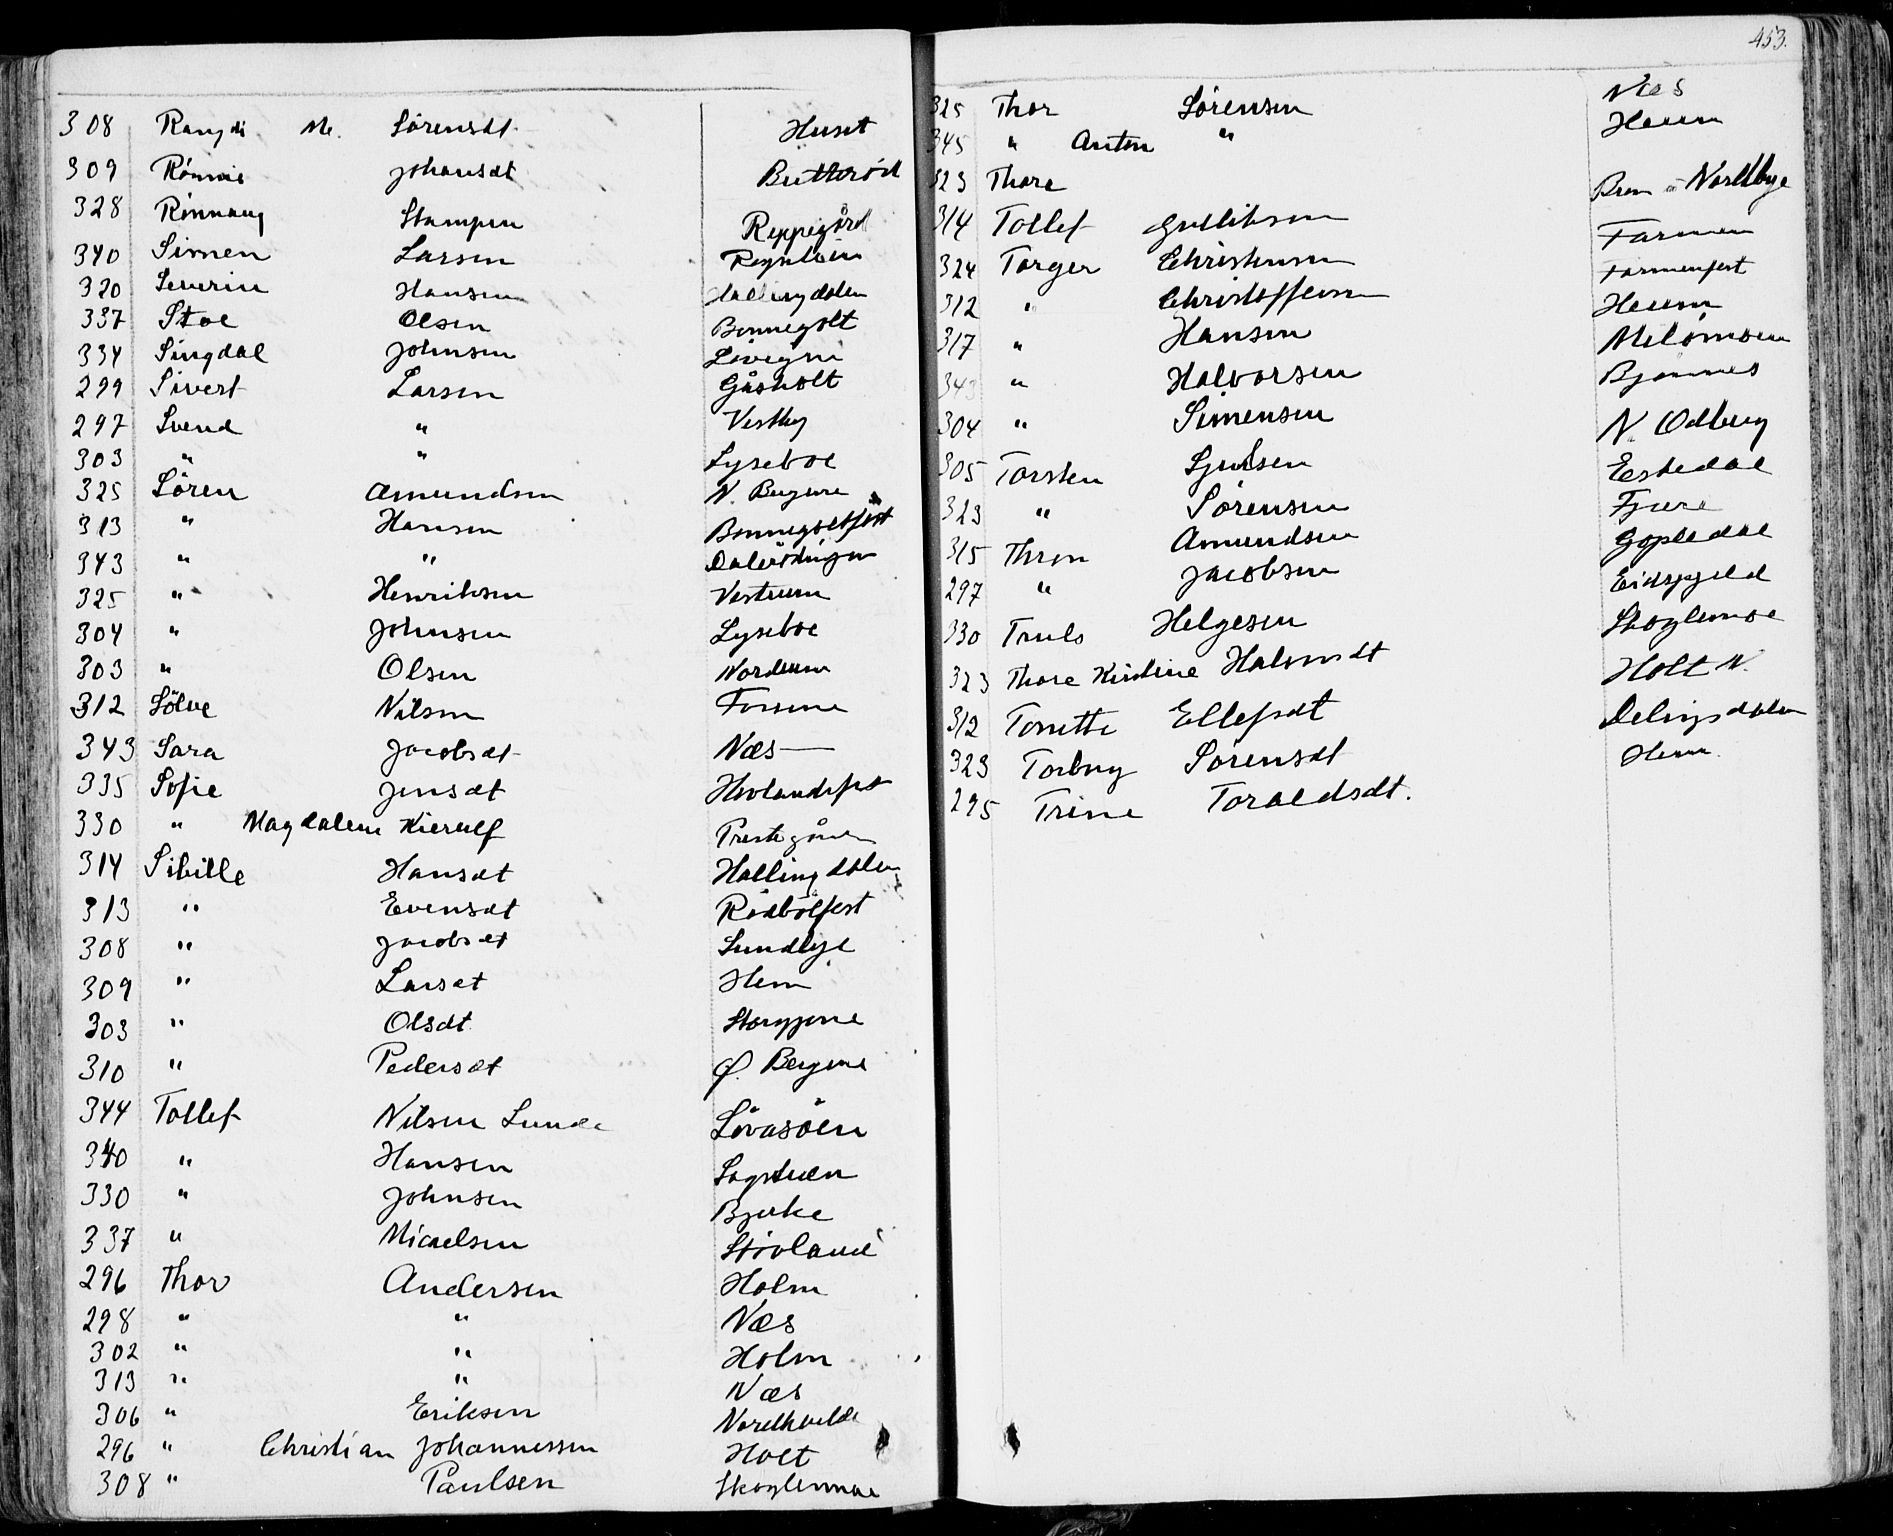 308 Rangdi M. Sörensdt Huset
309 Rønnie Johansdt Butterød
328 Rönnaug Stampen Reppegård
340 Simen Larsen
320 Severin Hansen Hallingdalen
337 Stoe Olsen Bonnegolt
334 Singdal Johnsen Lövegne
299 Sivert Larsen Gåsholt
297 Svend " Vestby
303 " " Lyseboe
325 Sören Amundsen N. Bergene
313 " Hansen Bonnegoltfest
343 " "
325 " Henriksen Vestrum
304 " Johnsen Lyseboe
303 " Olsen Nordrum
312 Sölve Nilsen Fossene
343 Sara Jacobsdt Næs
335 Sofie Jensdt Hovlandsfest
330 " Magdalene Kierulf Prestegården
314 Sibille Hansdt Hallingdalen
313 " Evensdt Rødbölfest
308 " Jacobsdt Sundbye
309 " Larsdt Hem
303 " Olsdt
310 " Pedersdt Ø. Bergene
344 Tollef Nilsen Lunde Lövasöen
340 " Hansen Sagstuen
330 " Johnsen Bjerke
337 " Micaelsen Stövland
296 Thor Andersen Holm
298 " " Næs
302 " " Holm
313 " " Næs
306 " Eriksen
296 " Christian Johannessen Holt
308 " Paulsen Skoglemoe
453.
325 Thor Sörensen Næs
345 " Anton " Heum
323 Thore Nordbye
314 Tollef Gulliksen Farmen
324 Torger Christensen Farmenfest
312 " Christoffersen Heum
317 " Hansen Melömoen
343 " Halvorsen Bjönnes
304 " Simensen N. Odberg
305 Torsten Sjulsen Eskedal
323 " Sörensen Fjære
315 Thron Amundsen Gopledal
297 " Jacobsen Eidsfjeld
330 Truls Helgesen Skoglemoe
323 Thore Kirstine Halvorsdt Holt N.
312 Tonette Ellefsdt Delingsdalen
323 Torborg Sorensdt Hem
295 Trine Toraldsdt.